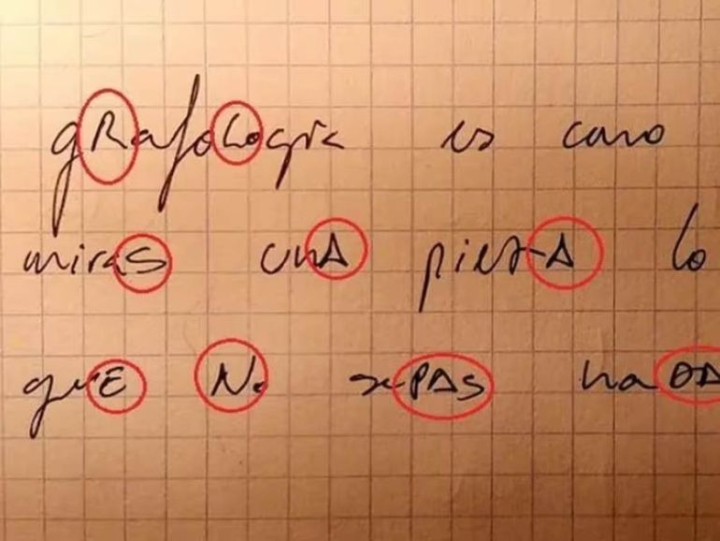 gRafología es como
miras unA piedrA lo
quE No sePAS naDA